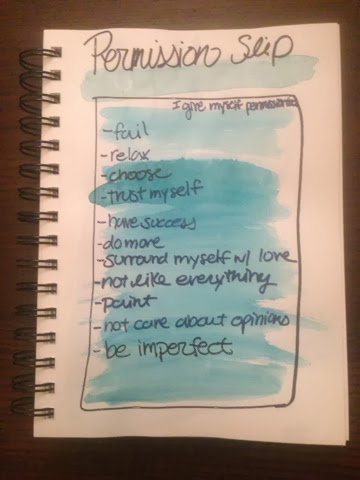 Permission Slip
I give myself permission to
-fail
-relax
-choose
-trust myself
-have success
-do more
-surround myself w/ love
-not like everything
-paint
-not care about opinions
-be imperfect